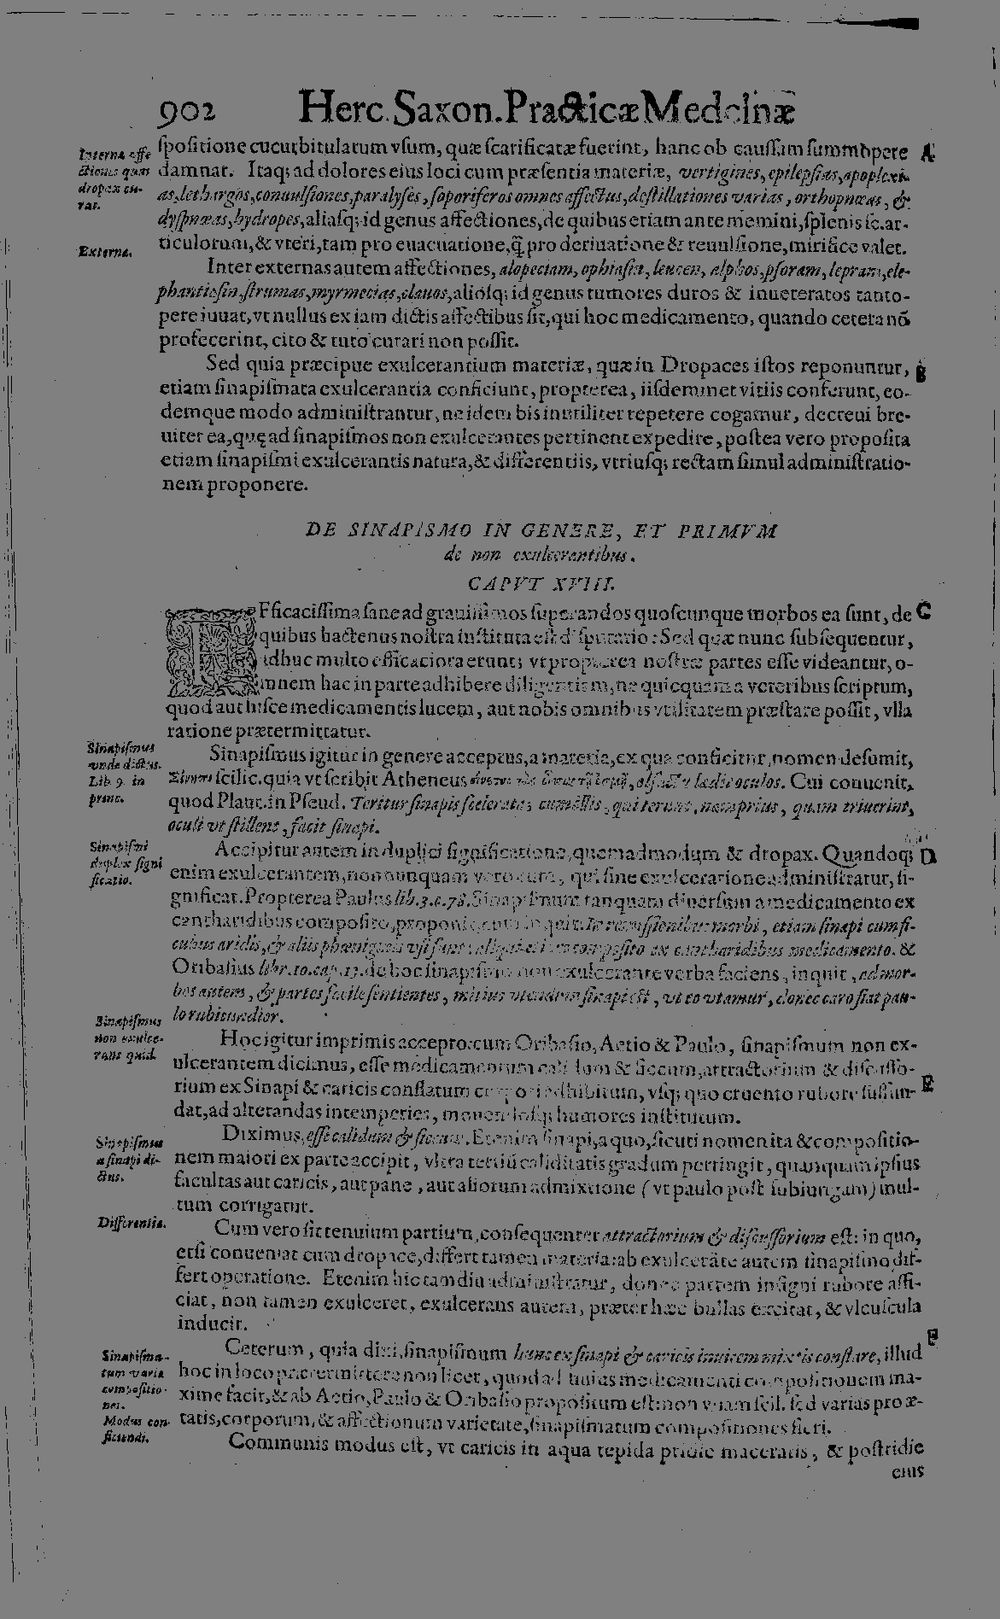 902 Herc. Saxon. Practicæ Medcinæ
Interna affe
ctiones quas
dropax cu-
rat.
ſpoſitione cucurbitulatum vſum, quæ ſcarificatæ fuerint, hanc ob cauſſam ſummopere A
damnat. Itaq; ad dolores eius loci cum præſentia materiæ, vertigines, epilepſias, apoplexi-
as, lethargos, conuulſiones, paralyſes, ſoporiferos omnes affectus, deſtillationes varias, orthopnœas, &
dyſpnœas, hydropes, aliaſq; id genus affectiones, de quibus etiam ante memini, ſplenis ſc. ar-
ticulorum, & vteri, tam pro euacuatione, q̃ pro deriuatione & reuulſione, mirifice valet.
Externa.
Inter externas autem affectiones, alopeciam, ophiaſin, leucen, alphos, pſoram, lepram, ele-
phantiaſin, ſtrumas, myrmecias, clauos, alioſq; id genus tumores duros & inueteratos tanto-
pere iuuat, vt nullus ex iam dictis affectibus ſit, qui hoc medicamento, quando cetera nō
profecerint, cito & tuto curari non poſſit.
Sed quia præcipue exulcerantium materiæ, quæ in Dropaces iſtos reponuntur, B
etiam ſinapiſmata exulcerantia conficiunt, propterea, iiſdemmet vitiis conferunt, eo-
demque modo adminiſtrantur, ne idem bis inutiliter repetere cogamur, decreui bre-
uiter ea, quę ad ſinapiſmos non exulcerantes pertinent expedire, poſtea vero propoſita
etiam ſinapiſmi exulcerantis natura, & differentiis, vtriuſq; rectam ſimul adminiſtratio-
nem proponere.
DE SINAPISMO IN GENERE, ET PRIMVM
de non exulcerantibus.
CAPVT XVIII.
EFficaciſſima ſane ad grauiſſimos ſuperandos quoſcunque morbos ea ſunt, de C
quibus hactenus noſtra inſtituta eſt diſputatio: Sed quæ nunc ſubſequentur,
adhuc multo efficaciora erunt; vt propterea noſtræ partes eſſe videantur, o-
mnem hac in parte adhibere diligentiam, ne quicquam a veteribus ſcriptum,
quod aut hiſce medicamentis lucem, aut nobis omnibus vtilitatem præſtare poſſit, vlla
ratione prætermittatur.
Sinapiſmus
vnde dictus.
Lib. 9. in
princ.
Sinapiſmus igitur in genere acceptus, a materia, ex qua conficitur, nomen deſumit,
ſcilic. quia vt ſcribit Atheneus lædit oculos. Cui conuenit,
quod Plaut. in Pſeud. Teritur ſinapis ſcelerata, cum illis, qui terunt, namprius, quam triuerint,
oculi vt ſtillent, facit ſinapi.
Sinapiſmi
duplex ſigni
ficatio.
Accipitur autem in duplici ſignificatione, quemadmodum & dropax. Quandoq; D
enim exulcerantem, nonnunquam vero eum, qui ſine exulceratione adminiſtratur, ſi-
gnificat. Propterea Paulus lib. 3. c. 78. Sinapiſmum tanquam diuerſum a medicamento ex
cantharidibus compoſito, proponit, cum inquit: In remiſſionibus morbi, etiam ſinapi cum fi-
cubus aridis, & aliis phœnigmis vſi ſunt: aliqui etiam compoſito ex cantharidibus medicamento. &
Oribaſius libr. 10. cap. 13. de hoc ſinapiſmo non exulcerante verba faciens, inquit, ad mor-
bos autem, & partes facile ſentientes, mitius vtendum ſinapi eſt, vt eo vtamur, donec caro fiat pau-
lo rubicundior.
Sinapiſmus
non exulce-
rans quid.
Hoc igitur imprimis accepto: cum Oribaſio, Aetio & Paulo, ſinapiſmum non ex-
ulcerantem dicimus, eſſe medicamentum calidum & ſiccum, attractorium & diſcuſſo-
rium ex Sinapi & caricis conflatum corpori adhibitum, vſq; quo cruento rubore ſuffun- E
dat, ad alterandas intemperies, mouendoſq; humores inſtitutum.
Sinapiſmus
a ſinapi di-
ctus.
Diximus, eſſe calidum & ſiccum. Etenim ſinapi, a quo, ſicuti nomen ita & compoſitio-
nem maiori ex parte accipit, vltra tertiū caliditatis gradum pertingit, quanquam ipſius
facultas aut caricis, aut pane, aut aliorum admixtione (vt paulo poſt ſubiungam) mul-
tum corrigatur.
Differentia.
Cum vero ſit tenuium partium, conſequenter attractorium & diſcuſſorium eſt: in quo,
etſi conueniat cum dropace, differt tamen materia: ab exulcerāte autem ſinapiſmo dif-
fert operatione. Etenim hic tamdiu adminiſtratur, donec partem inſigni rubore affi-
ciat, non tamen exulceret, exulcerans autem, præter hæc bullas excitat, & vlcuſcula
inducit.
Sinapiſma-
tum varia
compoſitio-
nes.
Modus con
ficiendi.
Ceterum, quia dixi, ſinapiſmum hunc ex ſinapi & caricis inuicem mixtis conſtare, illud F
hoc in loco prætermittere non licet, quod ad huius medicamenti compoſitionem ma-
xime facit, & ab Aetio, Paulo & Oribaſio propoſitum eſt: non vnam ſcil. ſed varias pro æ-
tatis, corporum, & affectionum varietate, ſinapiſmatum compoſitiones fieri.
Communis modus eſt, vt caricis in aqua tepida pridie maceratis, & poſtridie
eius